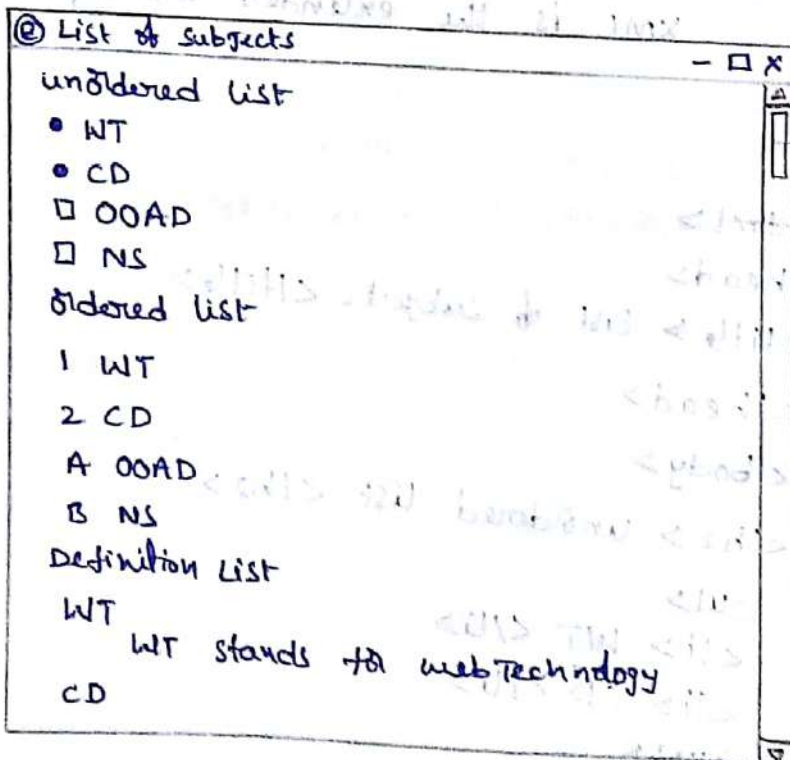 ⓔ List of subjects
— □ X
unordered list
• WT
• CD
□ OOAD
□ NS
ordered list
1 WT
2 CD
A OOAD
B NS
Definition List
WT
WT stands for web Technology
CD